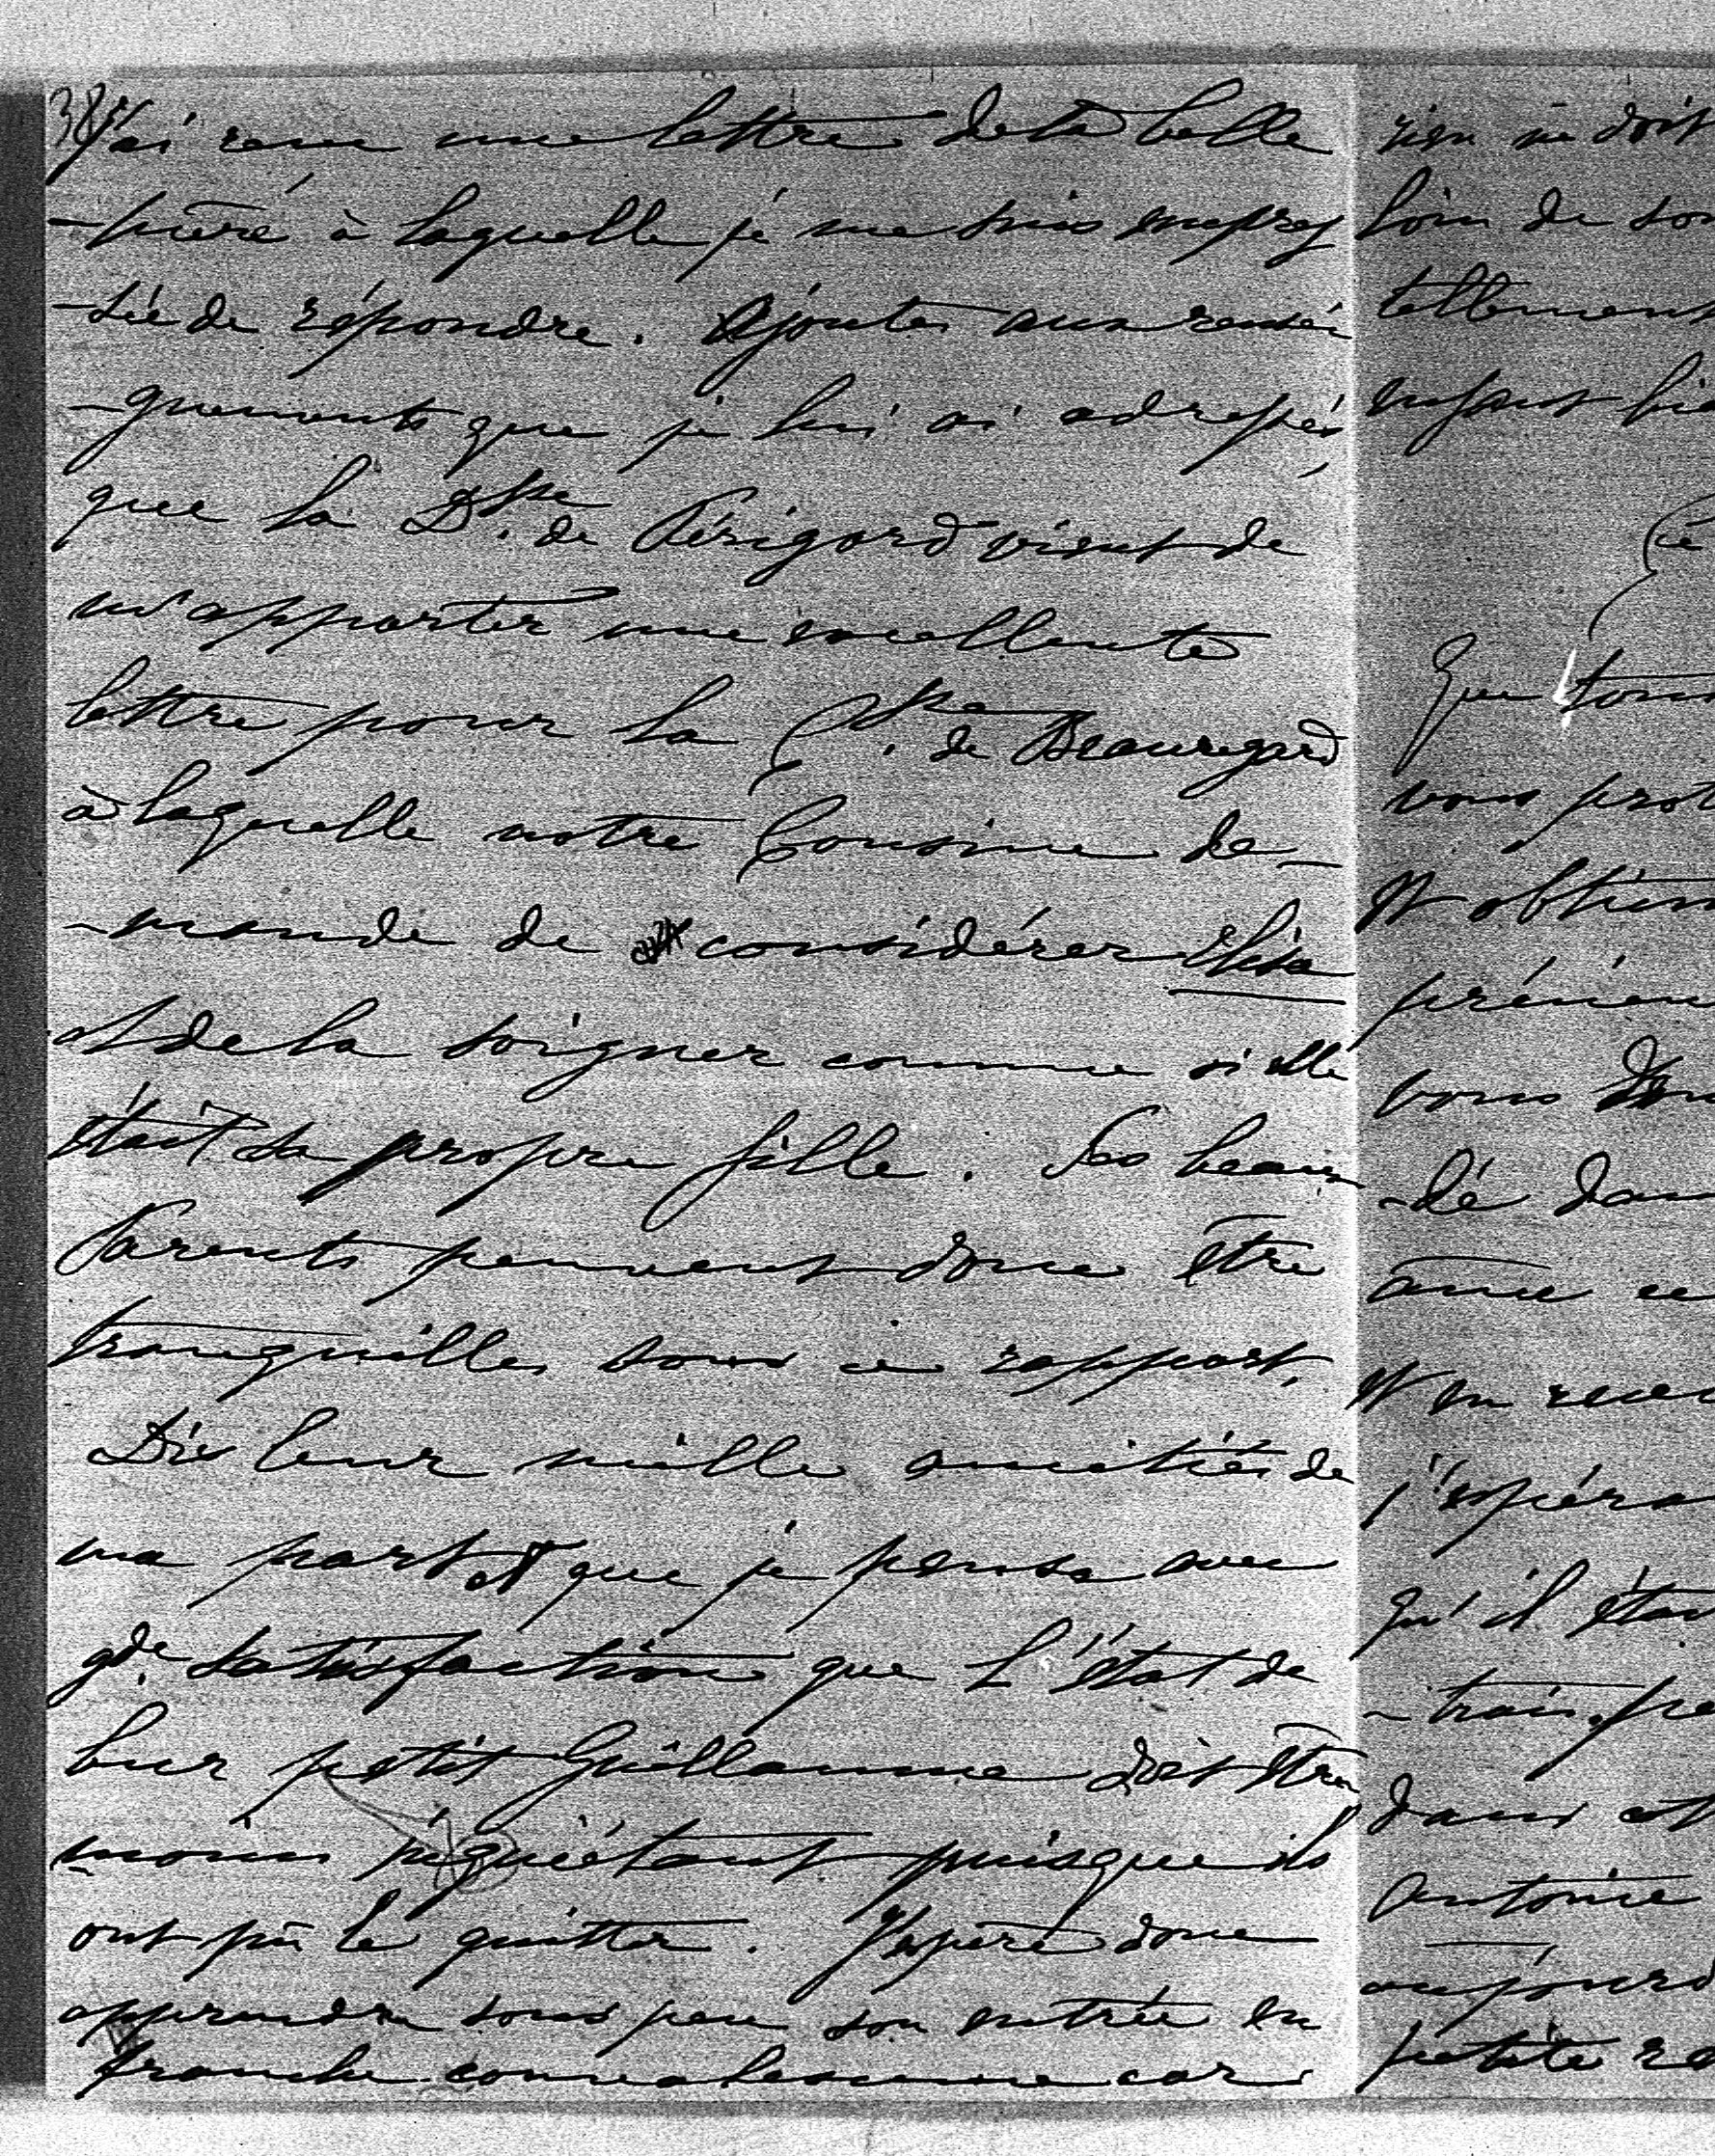 38
J'ai reçu une lettre de ta belle
-mère à laquelle je me suis empres
-sée de répondre. Ajoutes aux rensei
-gnements que je lui ai adressés
que la Dsse. de Périgord vient de
m'apporter une excellente
lettre pour la Csse. de Beauregard
à laquelle notre Cousine de-
-mande de considérer Elisa
et de la soigner comme si elle
était sa propre fille. Ses beaux
Parents peuvent donc être
tranquilles sous ce rapport.
Dis leur mille amitiés de
ma part et que je pense avec
gde. satisfaction que l'état de
leur petit Guillaume doit être
moins inquiétant puisque ils
ont pû le quitter. J'espère donc
apprendre sous peu son entrée en
franche convalescence car
rien ne doit
loin de son
tellement
enfant bie
Ce
Que
vous prot
et obtien
vous
-dé dan
âme ce
et en
j'espéra
qu'il étai
dans et
Antoine
aujourd
petite